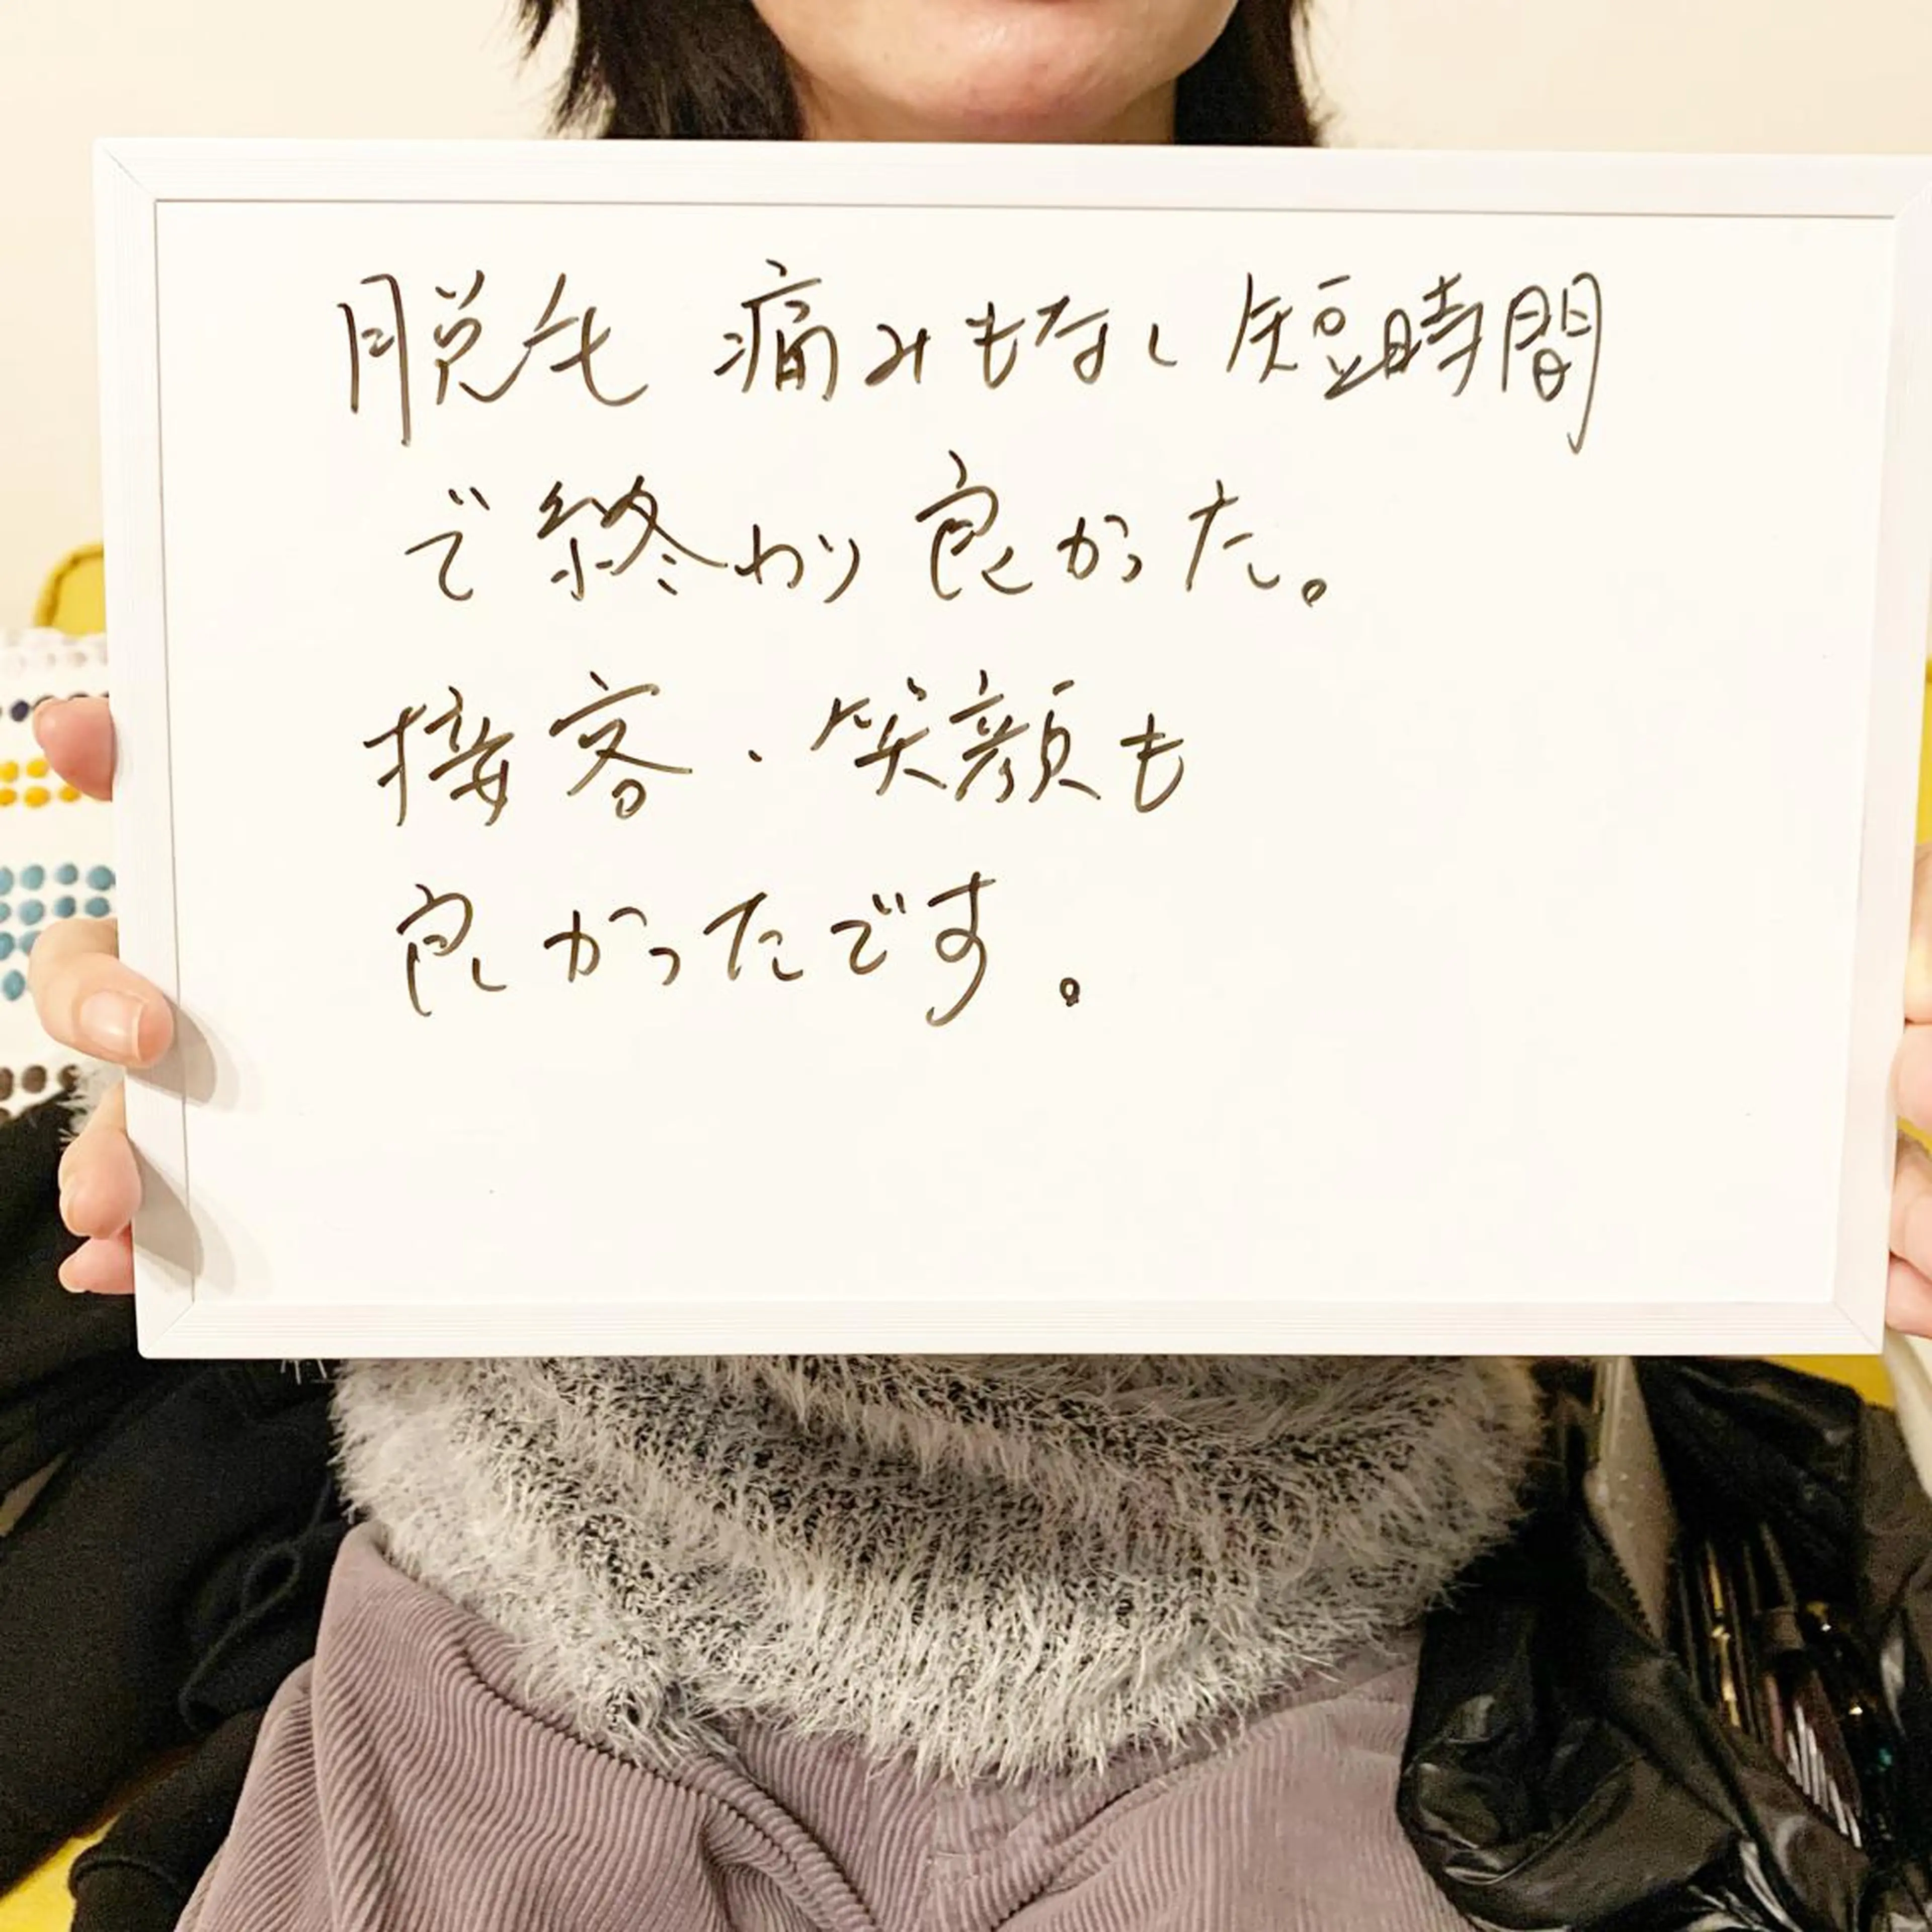 脱毛 痛みもなし短時間
で終わり良かった。
接客・笑顔も
良かったです。